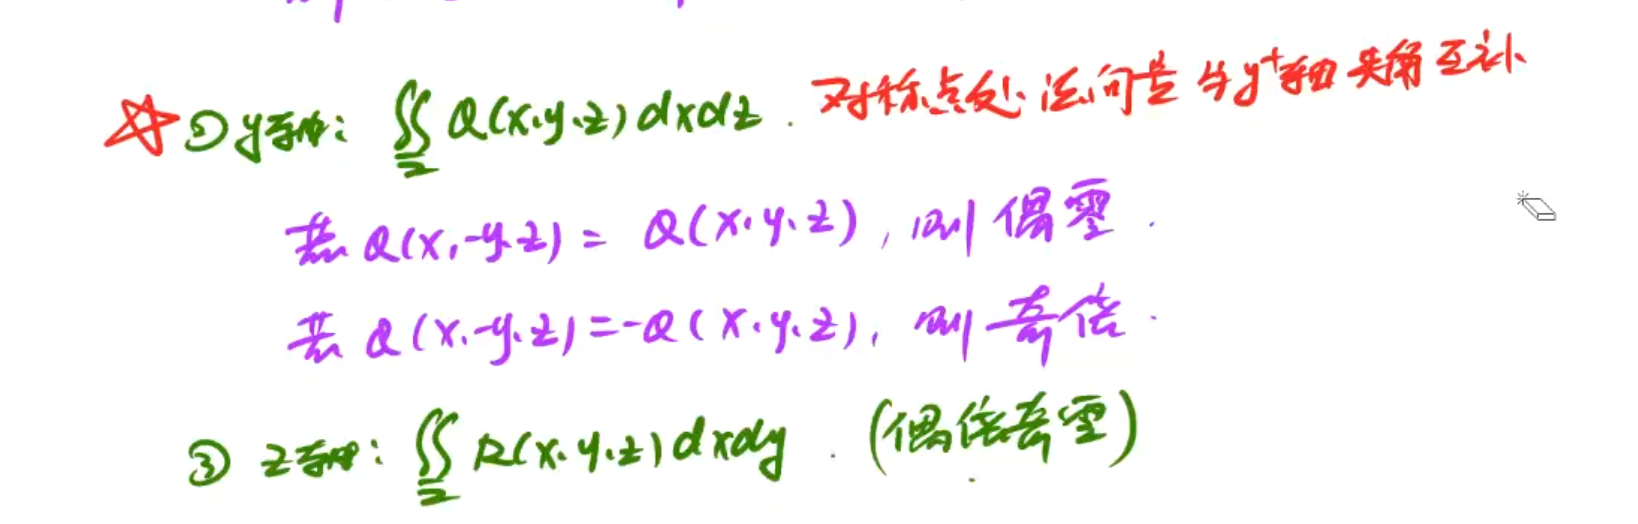 ☆ ② y轴: ∬Σ Q(x,y,z)dxdz. 对称点处法向量与y⁺轴夹角互补
若Q(x,-y,z)= Q(x,y,z), 则偶零.
若Q(x,-y,z)=-Q(x,y,z), 则奇倍.
③ z轴: ∬Σ R(x,y,z)dxdy. (偶倍奇零)